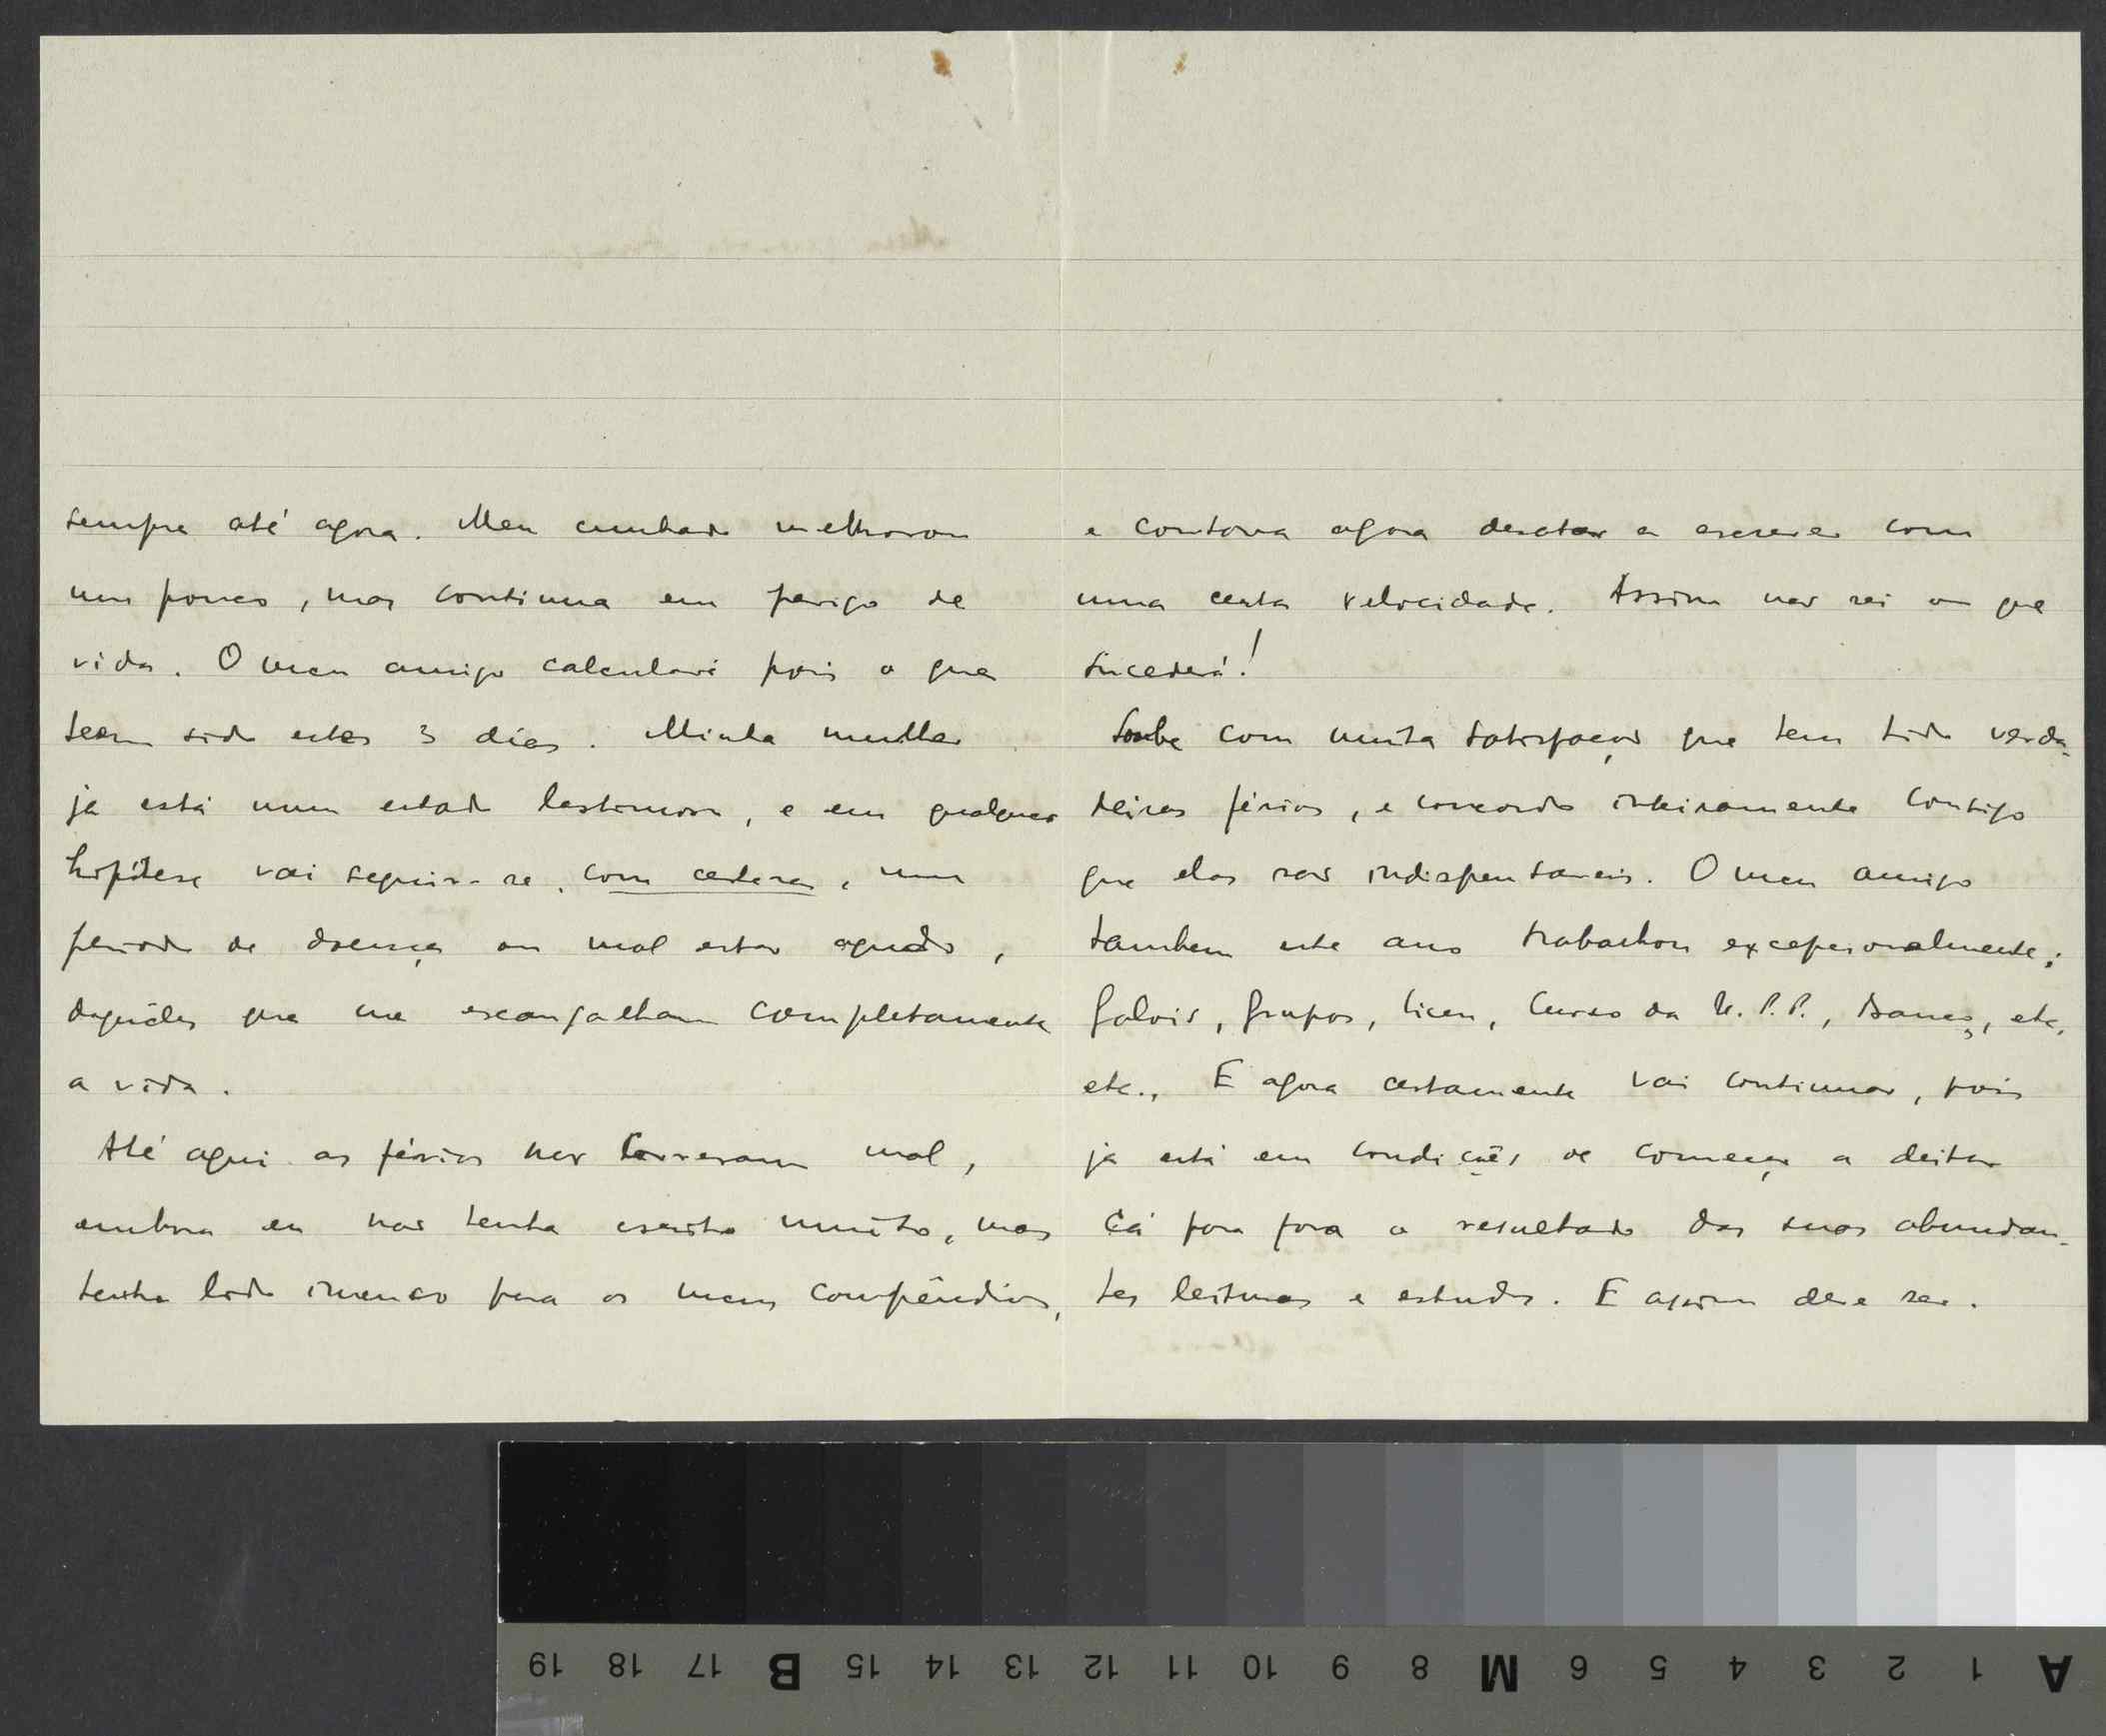 sempre até agora. Meu cunhado melhorou
um pouco, mas continua em perigo de
vida. O meu amigo calculará pois o que
teem sido estes 3 dias. Minha mulher
já está num estado lastimoso, e em qualquer
hipótese vai seguir-se, com certeza, um
periodo de doença ou mal estar agudo,
daquêles que me escangalham completamente
a vida.
Até aqui as férias não correram mal,
embora eu não tenha escrito muito, mas
tenha lido imenso para os meus compêndios,
e contava agora desatar a escrever com
uma certa velocidade. Assim não sei o que
sucederá!
Soube com muita satisfação que tem tido verda-
deiras férias, e concordo inteiramente contigo
que elas são indispensaveis. O meu amigo
tambem este ano trabalhou excepcionalmente;
Galois, Grupos, Liceu, Curso da U.P.P., Banco, etc.
etc., E agora certamente vai continuar, pois
já está em condições de começar a deitar
cá para fora o resultado das suas abundan-
tes leituras e estudos. E assim deve ser.
19 18 17 B 15 14 13 12 11 10 9 8 M 6 5 4 3 2 1 A